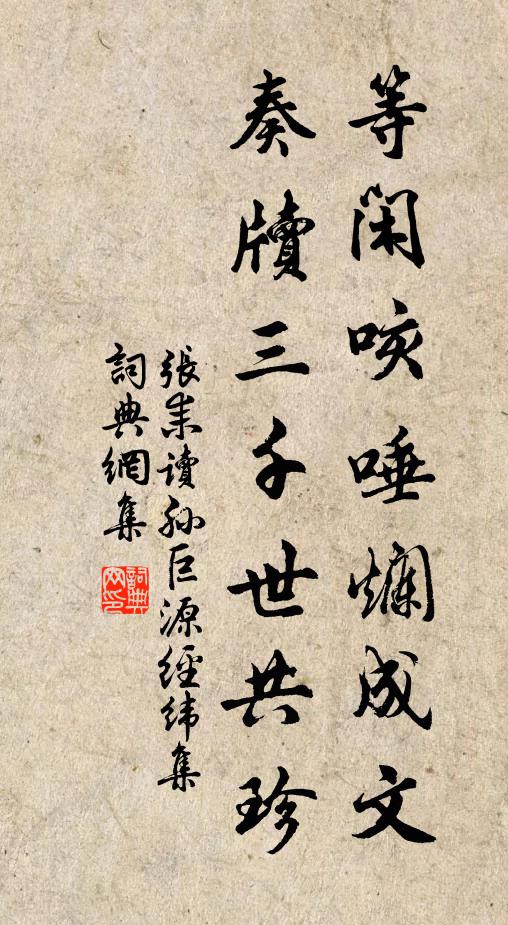 等閑咳唾爛成文
奏牘三千世共珍
張耒讀孫巨源經緯集
詞典網集
詞典網印